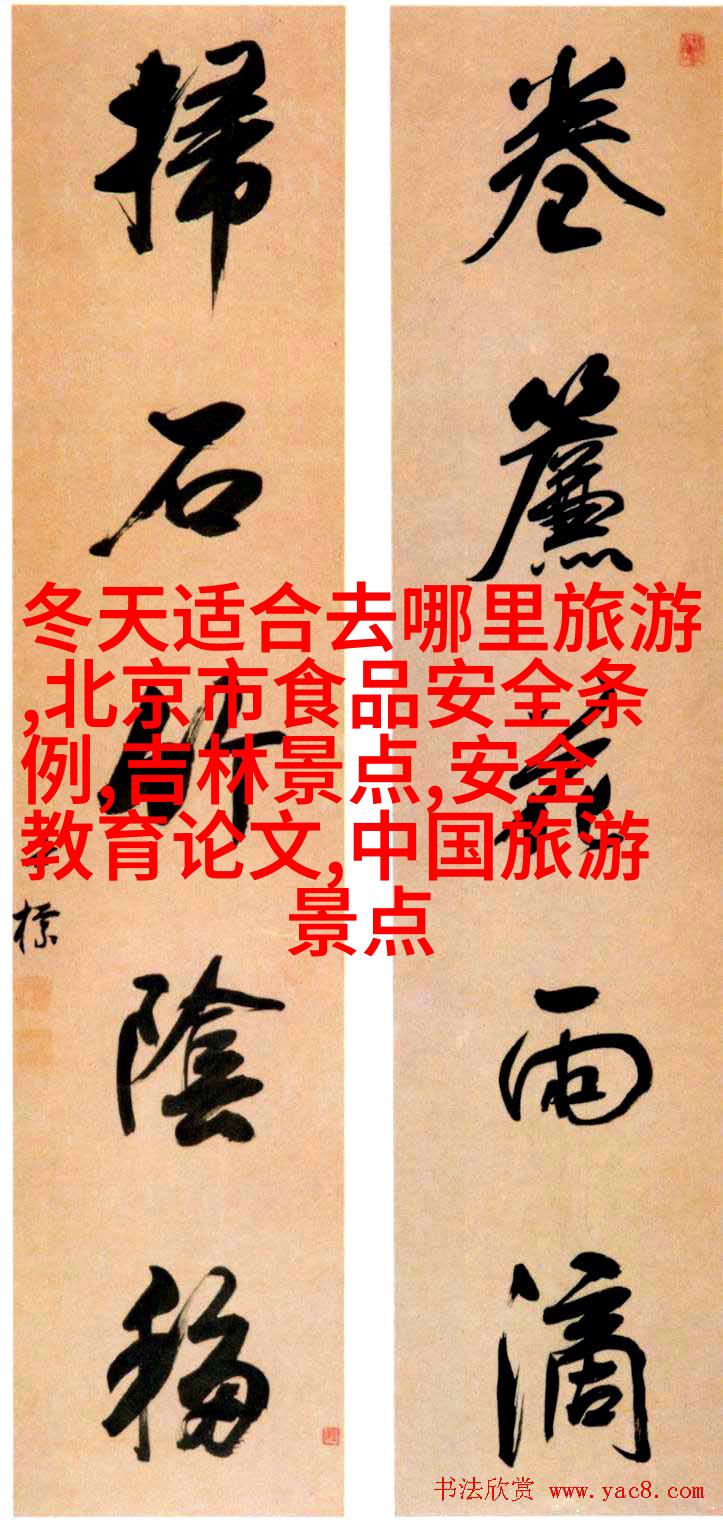 卷簾雨滴
掃石竹陰移
標
冬天适合去哪里旅游
,北京市食品安全条
例,吉林景点,安全
教育论文,中国旅游
景点
书法欣赏 www.yac8.com